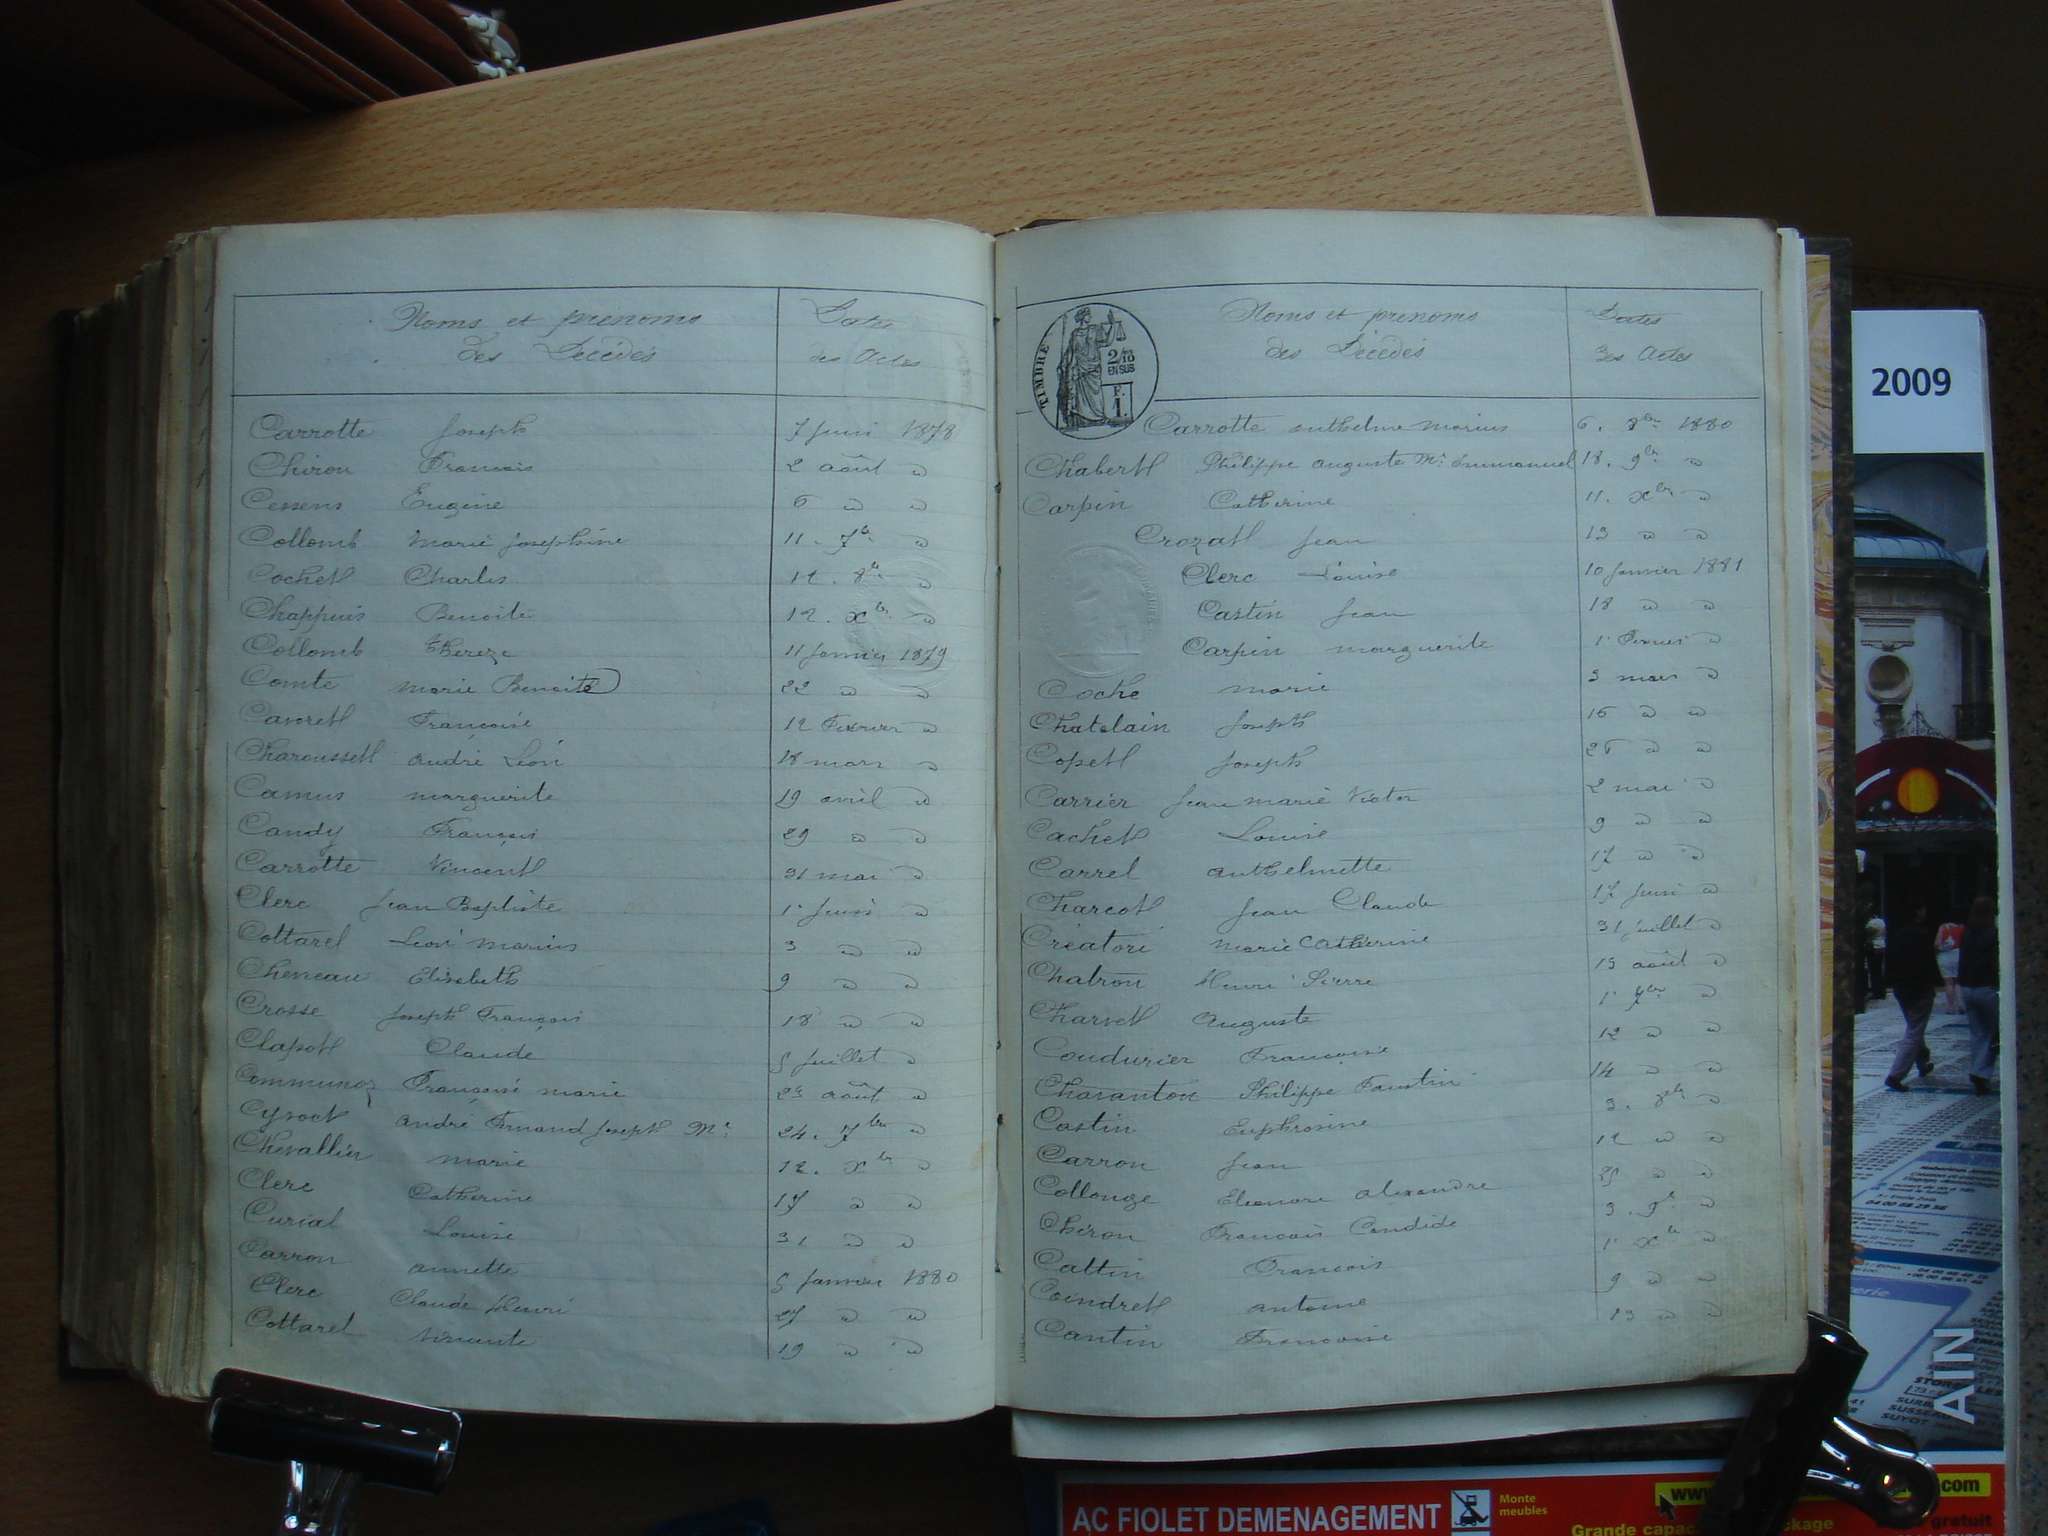 Noms et prénoms Dates
des Décédés des Actes
Carrotte Joseph 7 juin 1878
Chiron François 2 août "
Cessens Eugène 6 " "
Collomb Marie Joséphine 11. 7bre "
Cochet Charles 12. 8bre "
Chappuis Benoite 12. Xbre "
Collomb Thereze 11 janvier 1879
Comte Marie Benoite 22 " "
Cavoret Françoise 12 Fevrier "
Charousset André Léon 18 mars "
Camus marguerite 19 avril "
Candy François 29 " "
Carrotte Vincent 31 mai "
Clerc Jean Baptiste 1r juin "
Cottarel Léon marius 3 " "
Cheneau Elisabeth 9 " "
Crosse Joseph François 18 " "
Clapot Claude 5 juillet "
Communoz Françoise marie août "
André Joseph Me 24. 7bre "
Chevallier marie 12. Xbre "
Clerc Catherine 17 " "
Curial Louise 31 " "
Carron annette 5 Janvier 1880
Clerc Claude Henri 27 " "
Cottarel 19 " "
TIMBRE
2/10
EN SUS
F.
1.
Noms et prénoms Dates
des Décédés des Actes
Carrotte Anthelme Marius 6. 8bre 1880
Chabert Philippe Auguste Me Emmanuel 18. 9bre "
Carpin Catherine 11. Xbre "
Crozat Jean 13 " "
Clerc Louise 10 Janvier 1881
Castin Jean 18 " "
Carpin marguerite 1r Fevrier "
Coche marie 3 mars "
Chatelain Joseph 16 " "
Copet Joseph 26 " "
Carrier Jean marie Victor 2 mai "
Cachet Louise 9 " "
Carrel Anthelmette 17 " "
Charcot Jean Claude 17 juin "
Créatoré Marie Catherine 31 juillet "
Chatron Henri Pierre 13 août "
Charvet Auguste 1r 7bre "
Coudurier Françoise 12 " "
Charanton Philippe Faustin 14 " "
Castin Euphrosine 3. 8bre "
Carron Jean 12 " "
Collonge Eléonore Alexandre 25 " "
Chiron François Candide 3. 9bre "
Cattin François 1r Xbre "
Coindret Antoine 9 " "
Cantin Françoise 13 " "
2009
AIN
AC FIOLET DEMENAGEMENT
Monte
meubles
www
.com
Grande
gratuit